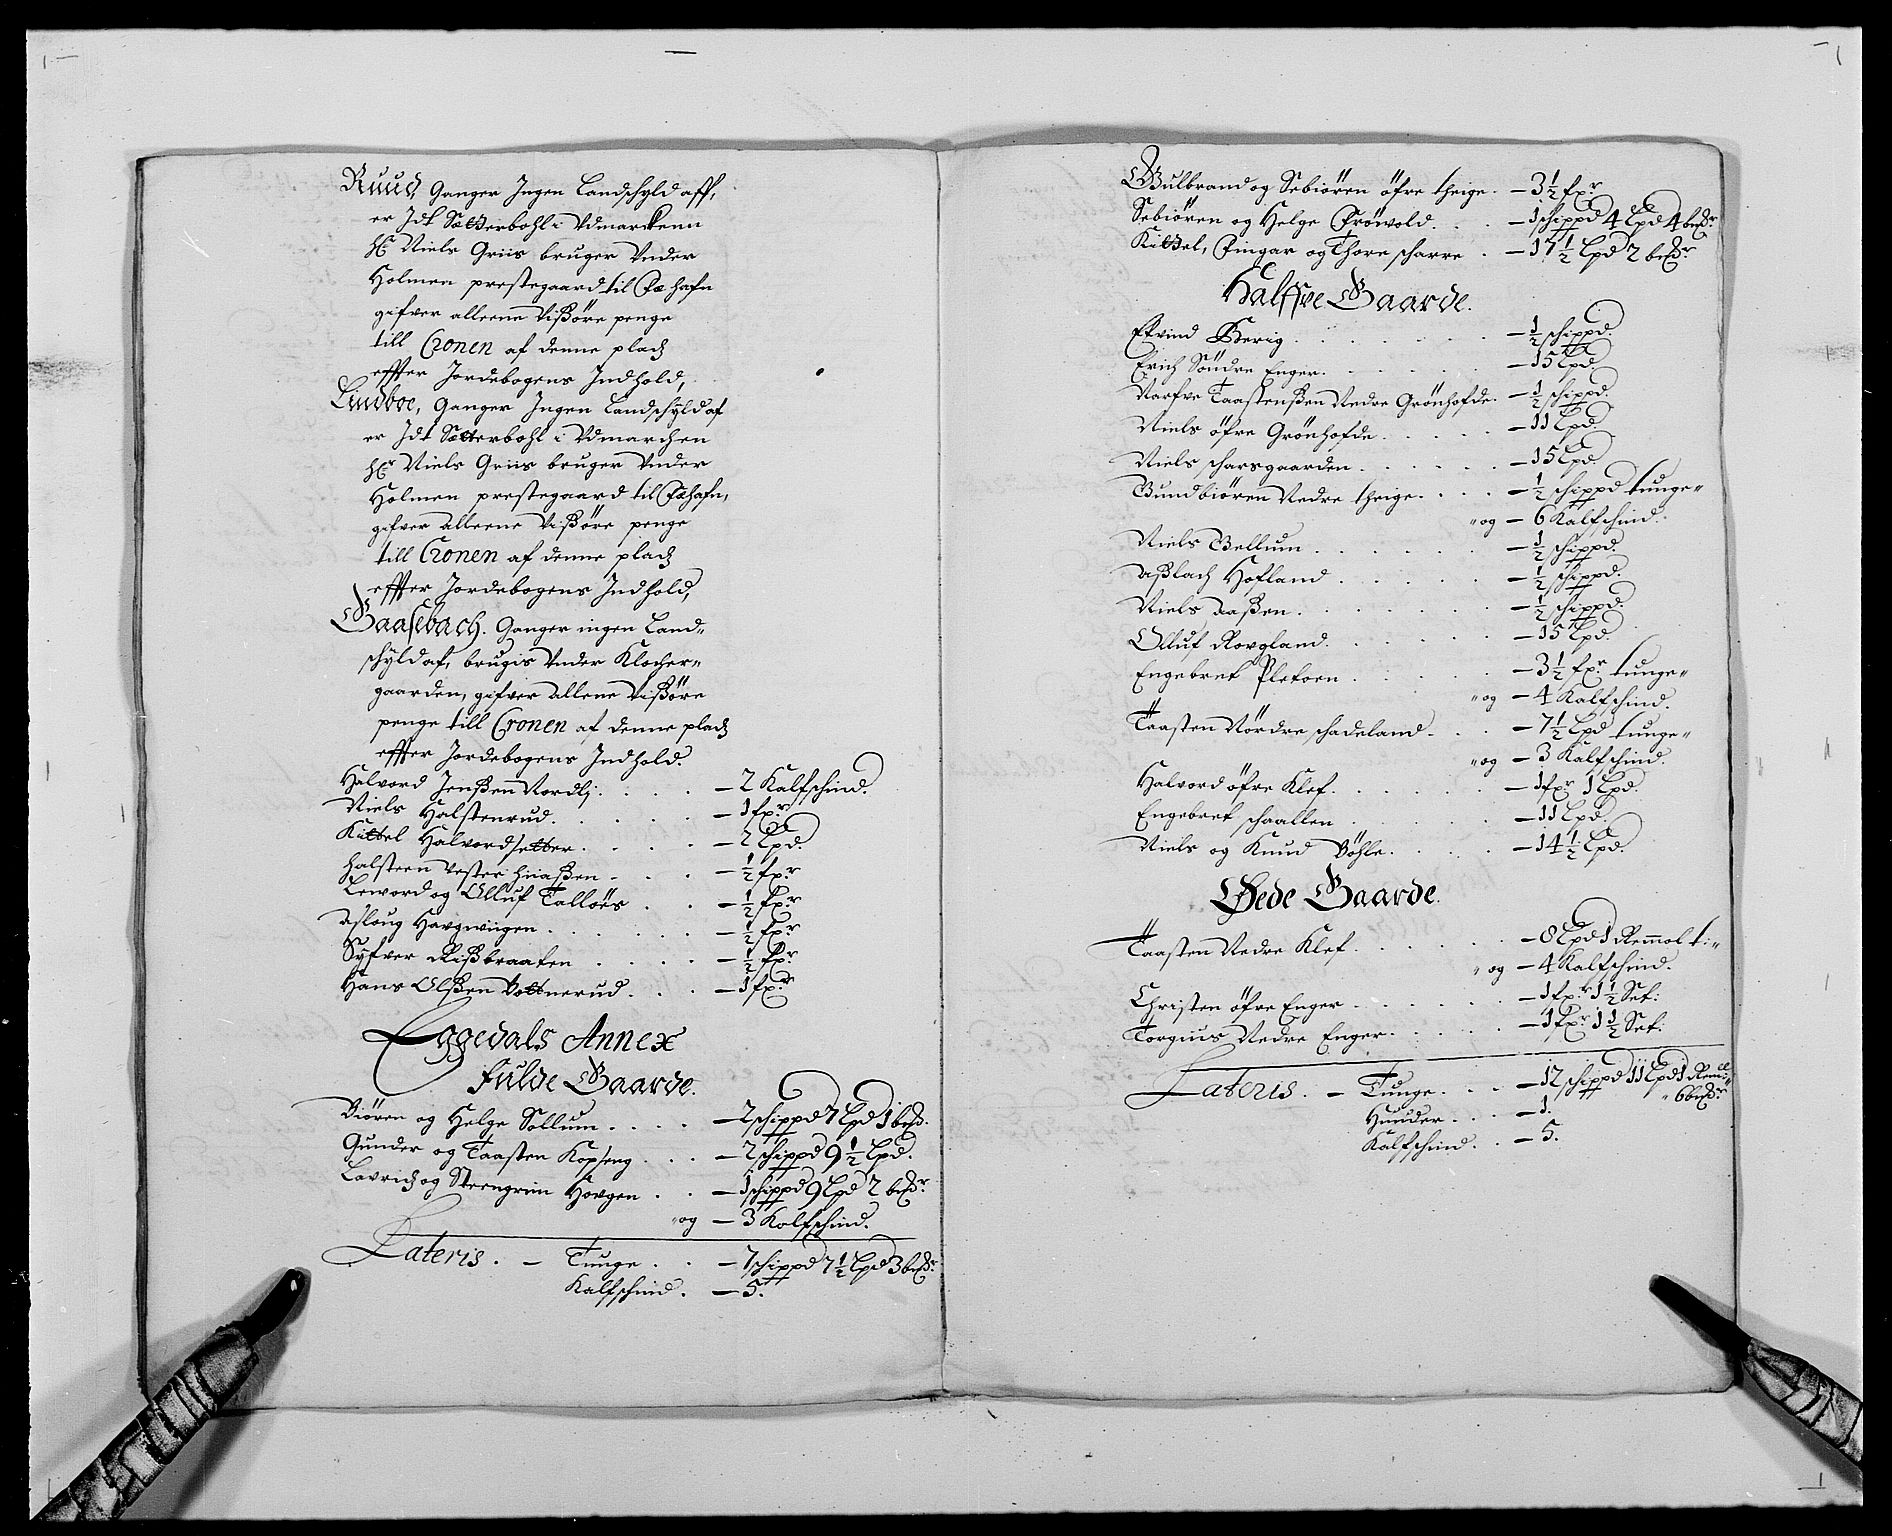 Ruud, Ganger Ingen Landschyld aff,
er Jdt Sætterbohl i Udmarckenn
Hr Niels Griis bruger Under
Holmen prestegaard til Fæhafn
gifver alleene Vißøre penge
till Cronen af denne pladz
effter Jordebogens Indhold,
Lindboe, Ganger Ingen Landschyld af
er Jdt Sætterbohl i Udmarchen
Hr Niels Griis bruger Under
Holmen prestegaard til Fæhafn,
gifver alleene Vißøre penge
till Cronen af denne pladz
effter Jordebogens Indhold,
Gaasebach. Ganger ingen Land-
schyld af, brugis Under Klocher-
gaarden, gifver allene Vißøre
penge till Cronen af denne pladz
effter Jordebogens Indhold.
Halvord Jenßenn Nordlj. — 2 Kalfschind.
Niels Halstenrud. — 1 fxr
Kittel Halvordsetter. — 2 Lpd.
Halsteen Vester Hiiaßen — ½ fxr
Levord og Olluf Talloes — ½ fxr
Aslaug Haugwiigen — ½ fxr
Syfver Rißbraaten — ½ fxr
Hans Olßen Bottnerud — 1 fxr
Eggedals Annex
Fulde Gaarde.
Biøren og Helge Sollum — 2 schippd 7 Lpd 1 bxd.
Gunder og Taasten Kopseng — 2 schippd 9½ Lpd.
Lavridz og Steengrim Hovgen — 1 schippd 9 Lpd 2 bxdr
og — 3 Kalfschind.
Lateris. — Tunge — 7 schippd 7½ Lpd 3 bxdr
Kalfschind. — 5.
Gulbrand og Sebiøren øfre Theige. — 3½ fxr
Sebiøren og Helge Frøvold. — 1 schippd 4 Lpd 4 bxdr
Kittel, Fingar og Thore scharre — 17½ Lpd 2 bxdr
Halffve Gaarde.
Eivind Gierig — ½ schippd.
Erich Søndre Enger. — 15 Lpd.
Narfve Taastenßen Nedre Grønhofde. — ½ schippd.
Niels øfre Grønhofde — 11 Lpd.
Niels scharsgaarden — 15 Lpd.
Gundbiøren Nedre theige — ½ schippd tunge
og — 6 Kalfschind.
Niels Bellum — ½ schippd.
Aßlach Hofland — ½ schippd.
Niels Aaßen — ½ schippd.
Olluf Rovgland — 15 Lpd
Engebret Pletoen — 3½ fxr tunge
og — 4 Kalfschind.
Taasten Nordre schadeland — 7½ Lpd tunge
og — 3 Kalfschind.
Halvord øfre Klef. — 1 fxr 1 Lpd.
Engebret schaallen — 11 Lpd.
Niels og Knud Bøhle. — 14½ Lpd.
Øede Gaarde.
Taasten Nedre Klef — 8 Lpd 1 Remmol t:
og — 4 Kalfschind.
Christen øfre Enger — 1 fxr 1½ Set:
Torgius Nedre Enger — 1 fxr 1½ Set:
Lateris. — Tunge — 12 schippd 11 Lpd 1 Remll:
6 bxdr
Huuder — 1.
Kalfschind — 5.